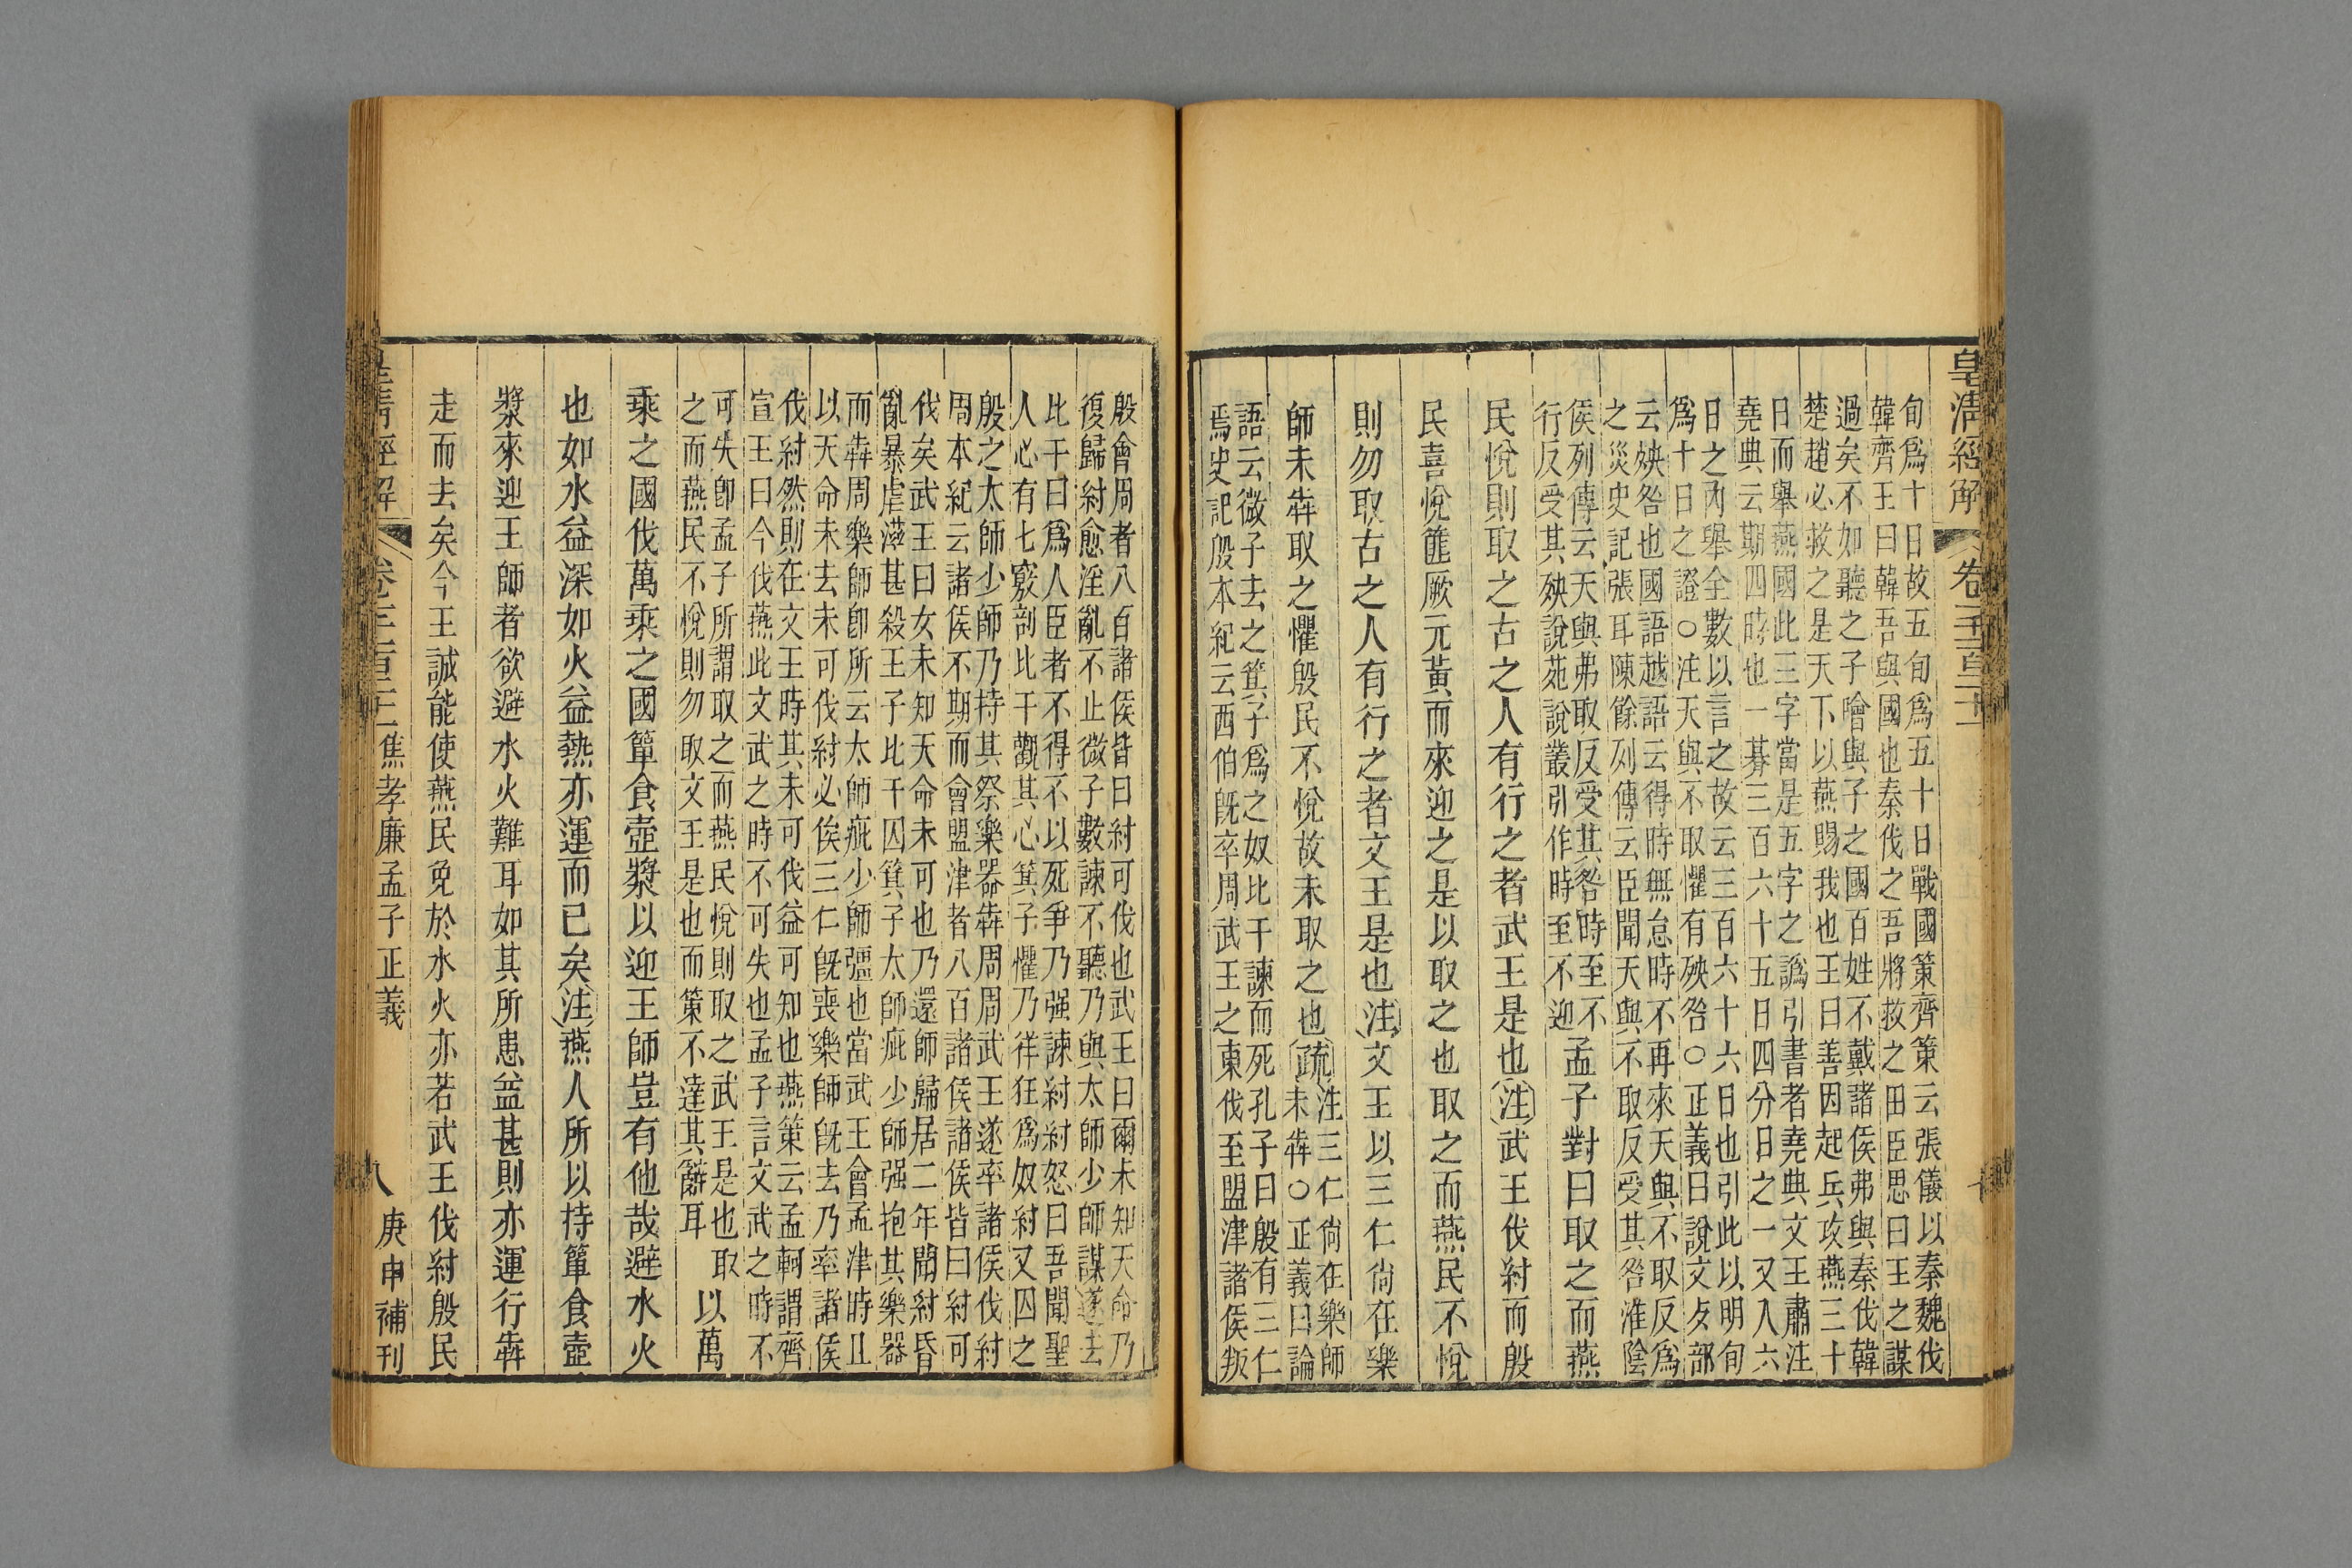 皇清經解
卷一千一百二十
旬爲十日故五旬爲五十日戰國策齊策云張儀以秦魏伐
韓齊王曰韓吾與國也秦伐之吾將救之田臣思曰王之謀
過矣不如聽之子噲與子之國百姓不戴諸侯弗與秦伐韓
楚趙必救之是天下以燕賜我也王曰善因起兵攻燕三十
日而舉燕國此三字當是五字之譌引書者堯典文王肅注
堯典云期四時也一朞三百六十五日四分日之一又入六
日之內舉全數以言之故云三百六十六日也引此以明旬
爲十日之證○注天與不取懼有殃咎○正義曰說文歺部
云殃咎也國語越語云得時無怠時不再來天與不取反爲
之災史記張耳陳餘列傳云臣聞天與不取反受其咎淮陰
侯列傳云天與弗取反受其咎時至不
行反受其殃說苑說叢引作時至不迎
孟子對曰取之而燕
民悅則取之古之人有行之者武王是也注武王伐紂而殷
民喜悅篚厥元黃而來迎之是以取之也取之而燕民不悅
則勿取古之人有行之者文王是也注文王以三仁尙在樂
師未犇取之懼殷民不悅故未取之也疏
注三仁尙在樂師
未犇○正義曰論
語云微子去之箕子爲之奴比干諫而死孔子曰殷有三仁
焉史記殷本紀云西伯旣卒周武王之東伐至盟津諸侯叛
殷會周者八百諸侯皆曰紂可伐也武王曰爾未知天命乃
復歸紂愈淫亂不止微子數諫不聽乃與太師少師謀遂去
比干曰爲人臣者不得不以死爭乃强諫紂紂怒曰吾聞聖
人必有七竅剖比干觀其心箕子懼乃祥狂爲奴紂又囚之
殷之太師少師乃持其祭樂器犇周周武王遂卒諸侯伐紂
周本紀云諸侯不期而會盟津者八百諸侯諸侯皆曰紂可
伐矣武王曰女未知天命未可也乃還師歸居二年聞紂昏
亂暴虐滋甚殺王子比干囚箕子太師疵少師强抱其樂器
而犇周樂師卽所云太師疵少師彊也當武王會孟津時且
以天命未去未可伐紂必俟三仁旣喪樂師旣去乃率諸侯
伐紂然則在文王時其未可伐益可知也燕策云孟軻謂齊
宣王曰今伐燕此文武之時不可失也孟子言文武之時不
可失卽孟子所謂取之而燕民悅則取之武王是也取
之而燕民不悅則勿取文王是也而策不達其辭耳
以萬
乘之國伐萬乘之國簞食壺漿以迎王師豈有他哉避水火
也如水益深如火益熱亦運而已矣注燕人所以持簞食壺
漿來迎王師者欲避水火難耳如其所患益甚則亦運行犇
走而去矣今王誠能使燕民免於水火亦若武王伐紂殷民
皇清經解
焦孝廉孟子正義
八
庚申補刊